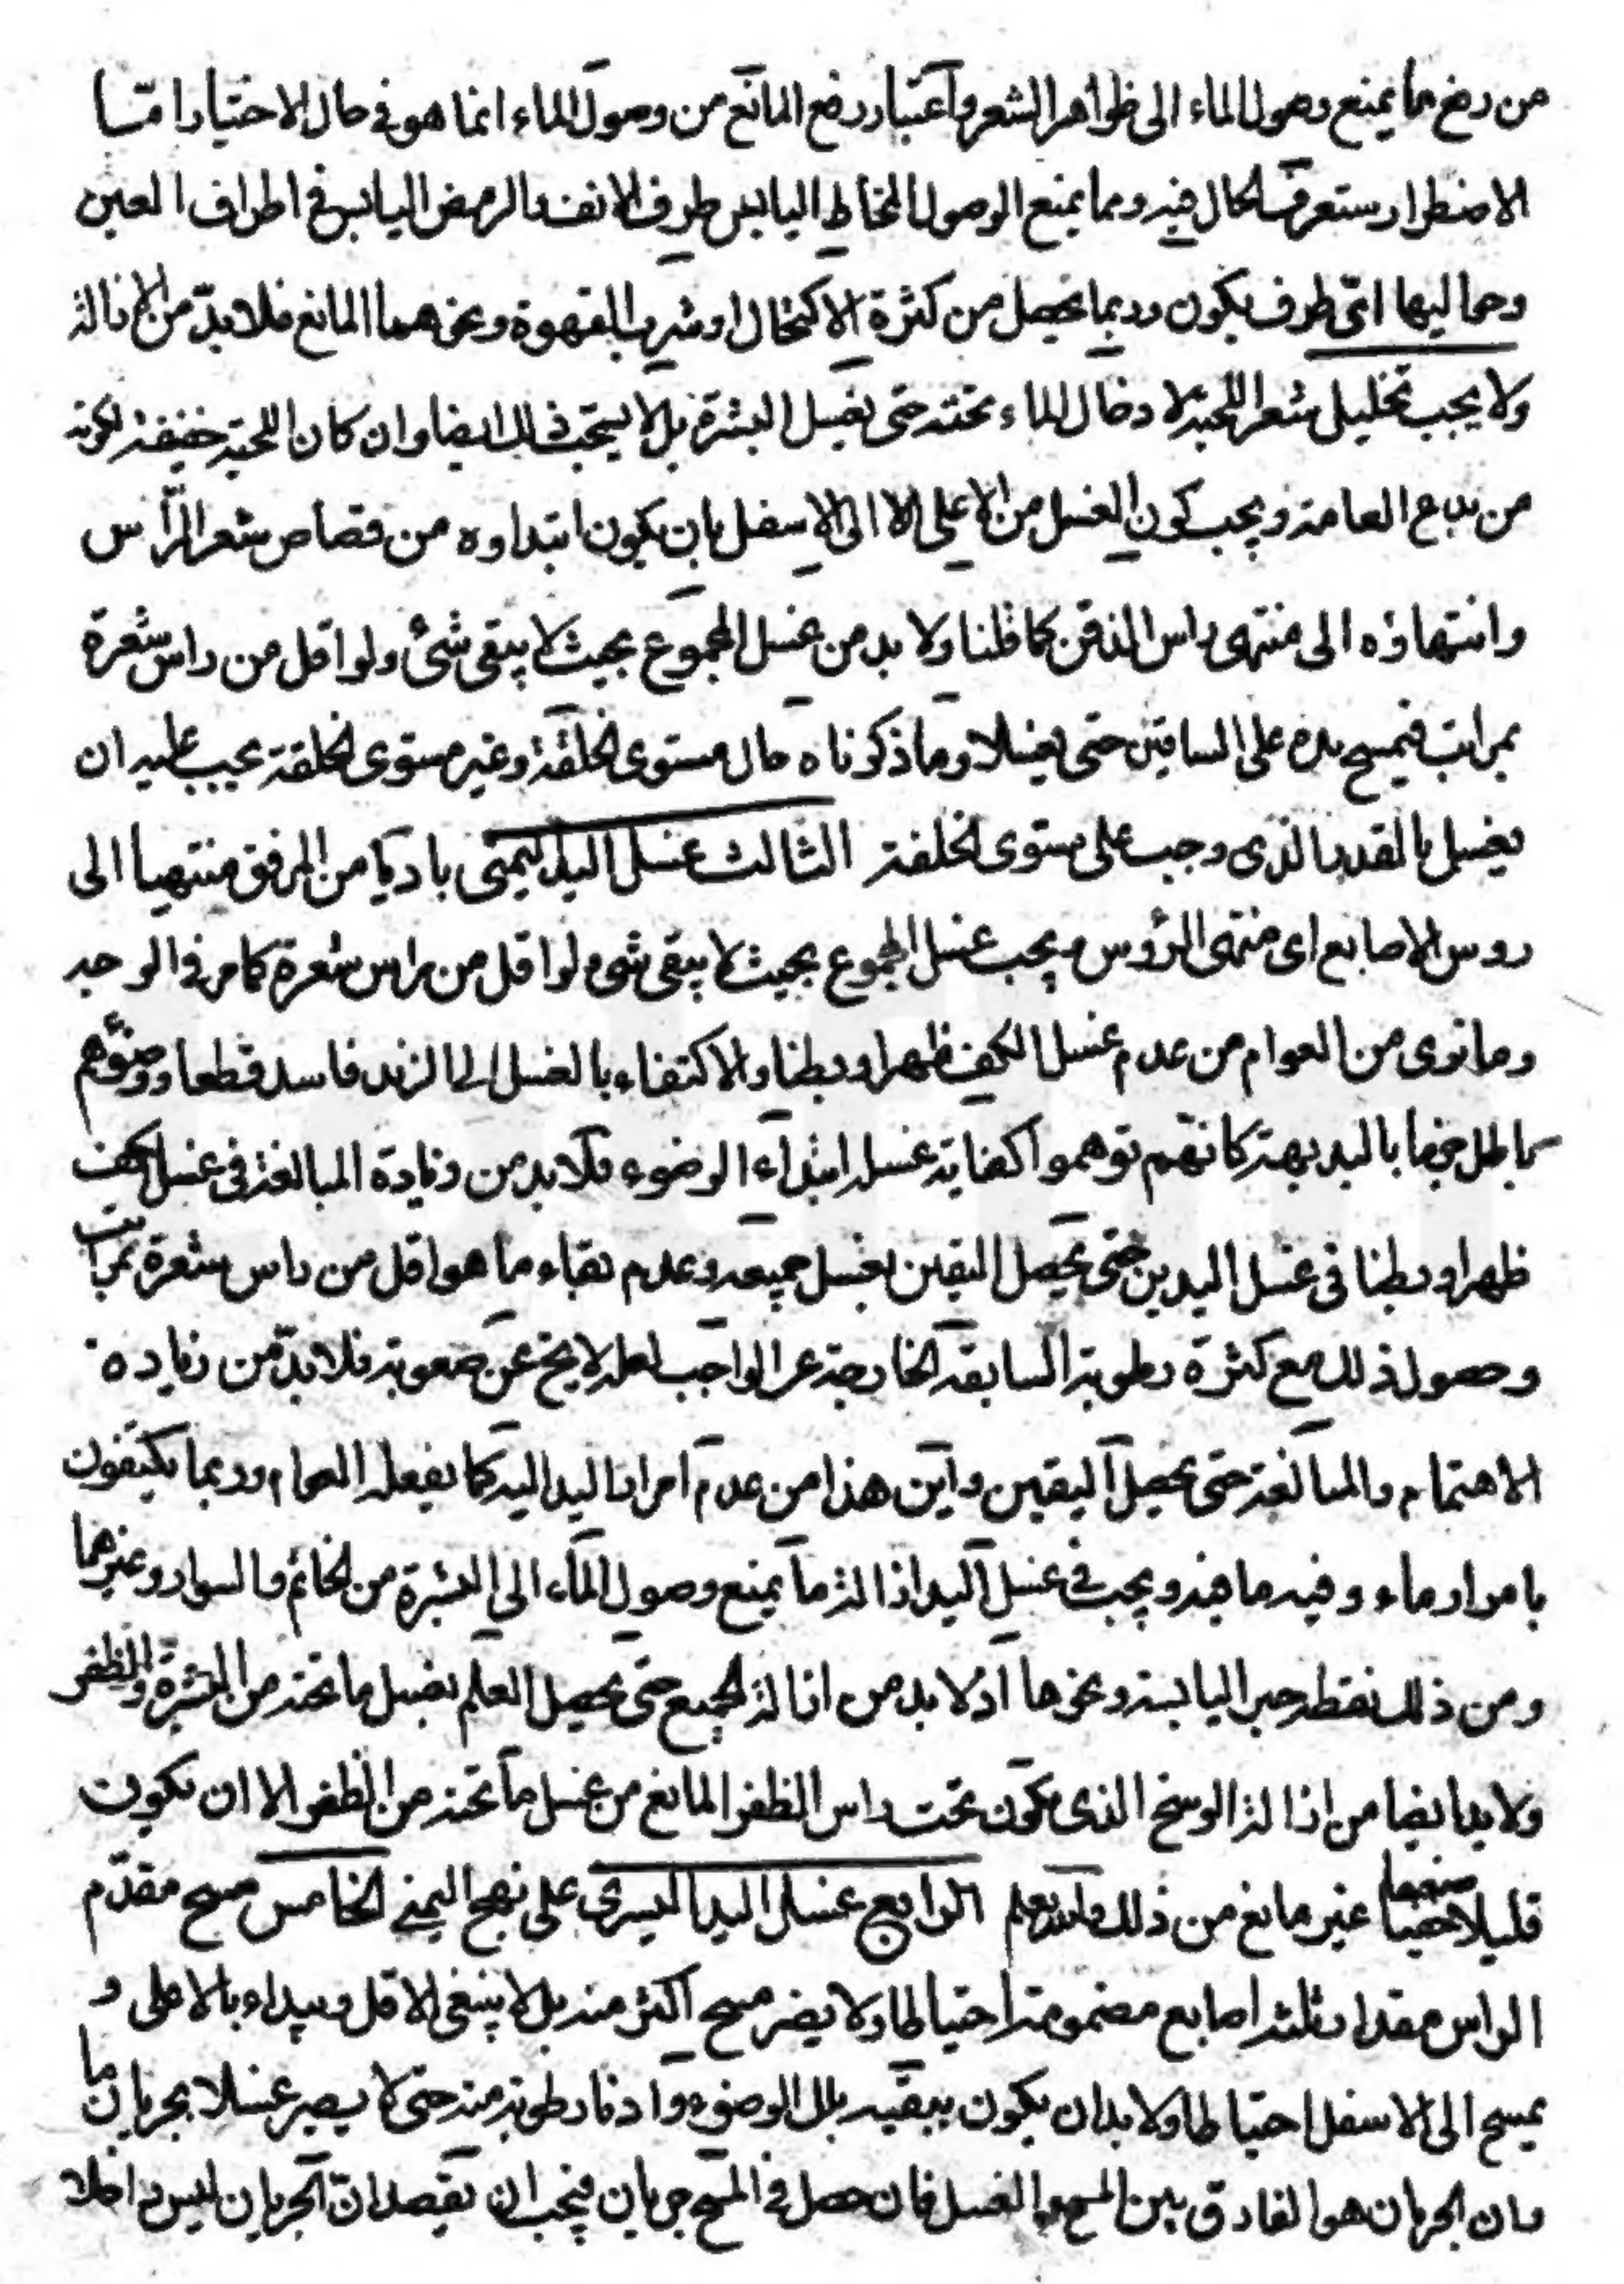 من رفع ما يمنع وصول الماء الى ظواهر الشعر واعتبار رفع المانع من وصول الماء انما هو فى حال الاختيار امّا
الاضطرار ستعرف الحال فيه ومما يمنع الوصول المخاط اليابس طرف الانف والرمص اليابس فى اطراف العين
وحواليها اىّ طرف يكون وربما يحصل من كثرة الاكتحال او شرب القهوة ونحوهما المانع فلا بدّ من الازالة
ولا يجب تخليل شعر اللحية لادخال الماء تحته حتى يغسل البشرة بل لا يستحب ذلك ايضا وان كان اللحية خفيفة لكونه
من بدع العامة ويجب كون الغسل من الاعلى الا الى الاسفل بان يكون ابتداوه من قصاص شعر الرّأس
وانتهاؤه الى منتهى راس الذقن كما قلنا ولا بد من غسل المجموع بحيث لا يبقى شئ ولو اقل من راس شعرة
بمراتب فيمسح يده على الساقين حتى يغسلا وما ذكرناه حال مستوى الخلقة وغير مستوى الخلقة يجب عليه ان
يغسل بالقدر الذى وجب على مستوى الخلقة الثالث غسل اليد اليمنى باديا من المرفق منتهيا الى
روس الاصابع اى منتهى الرؤس ويجب غسل المجموع بحيث لا يبقى شئ ولو اقل من راس شعرة كما مر فى الوجه
وما نرى من العوام من عدم غسل الكف ظهرا وبطنا والاكتفاء بالغسل الى الزند فاسد قطعا ووضوؤهم
باطل جزما بالبديهة كانهم توهموا كفاية غسله ابتداء الوضوء فلا بد من زيادة المبالغة فى غسل الكف
ظهرا وبطنا فى غسل اليدين حتى يحصل اليقين بغسل جميعه وعدم بقاء ما هو اقل من راس شعرة بمراتب
وحصول ذلك مع كثرة رطوبة السابقة الخارجة عن الواجب لعله لا يخ عن صعوبة فلا بدّ من زياده
الاهتمام والمبالغة حتى يحصل اليقين واين هذا من عدم امرار اليد اليه كما يفعله العوام وربما يكتفون
بامرار ماء وفيه ما فيه ويجب فى غسل اليد ازالة ما يمنع وصول الماء الى البشرة من الخاتم والسوار وغيرهما
ومن ذلك نقطة حبر اليابسة ونحوها اذ لا بد من ازالة الجميع حتى يحصل العلم بغسل ما تحته من البشرة والظفر
ولا بد ايضا من ازالة الوسخ الذى يكون تحت راس الظفر المانع من غسل ما تحته من الظفر الا ان يكون
قليلا ضعيفا غير مانع من ذلك والله يعلم الرابع غسل اليد اليسرى على نهج اليمنى الخامس مسح مقدّم
الراس مقدار ثلثة اصابع مضمومة احتياطا ولا يضر مسح اكثر منه بل لا ينبغى الاقل ويبداء بالاعلى و
يمسح الى الاسفل احتياطا ولا بد ان يكون ببقيه بلل الوضوء وادنا رطوبة منه حتى لا يصير غسلا بجريان ما
وان الجريان هو الفارق بين المسح والغسل فان حصل فى المسح جريان فيجب ان يقصد انّ الجريان ليس داخلا